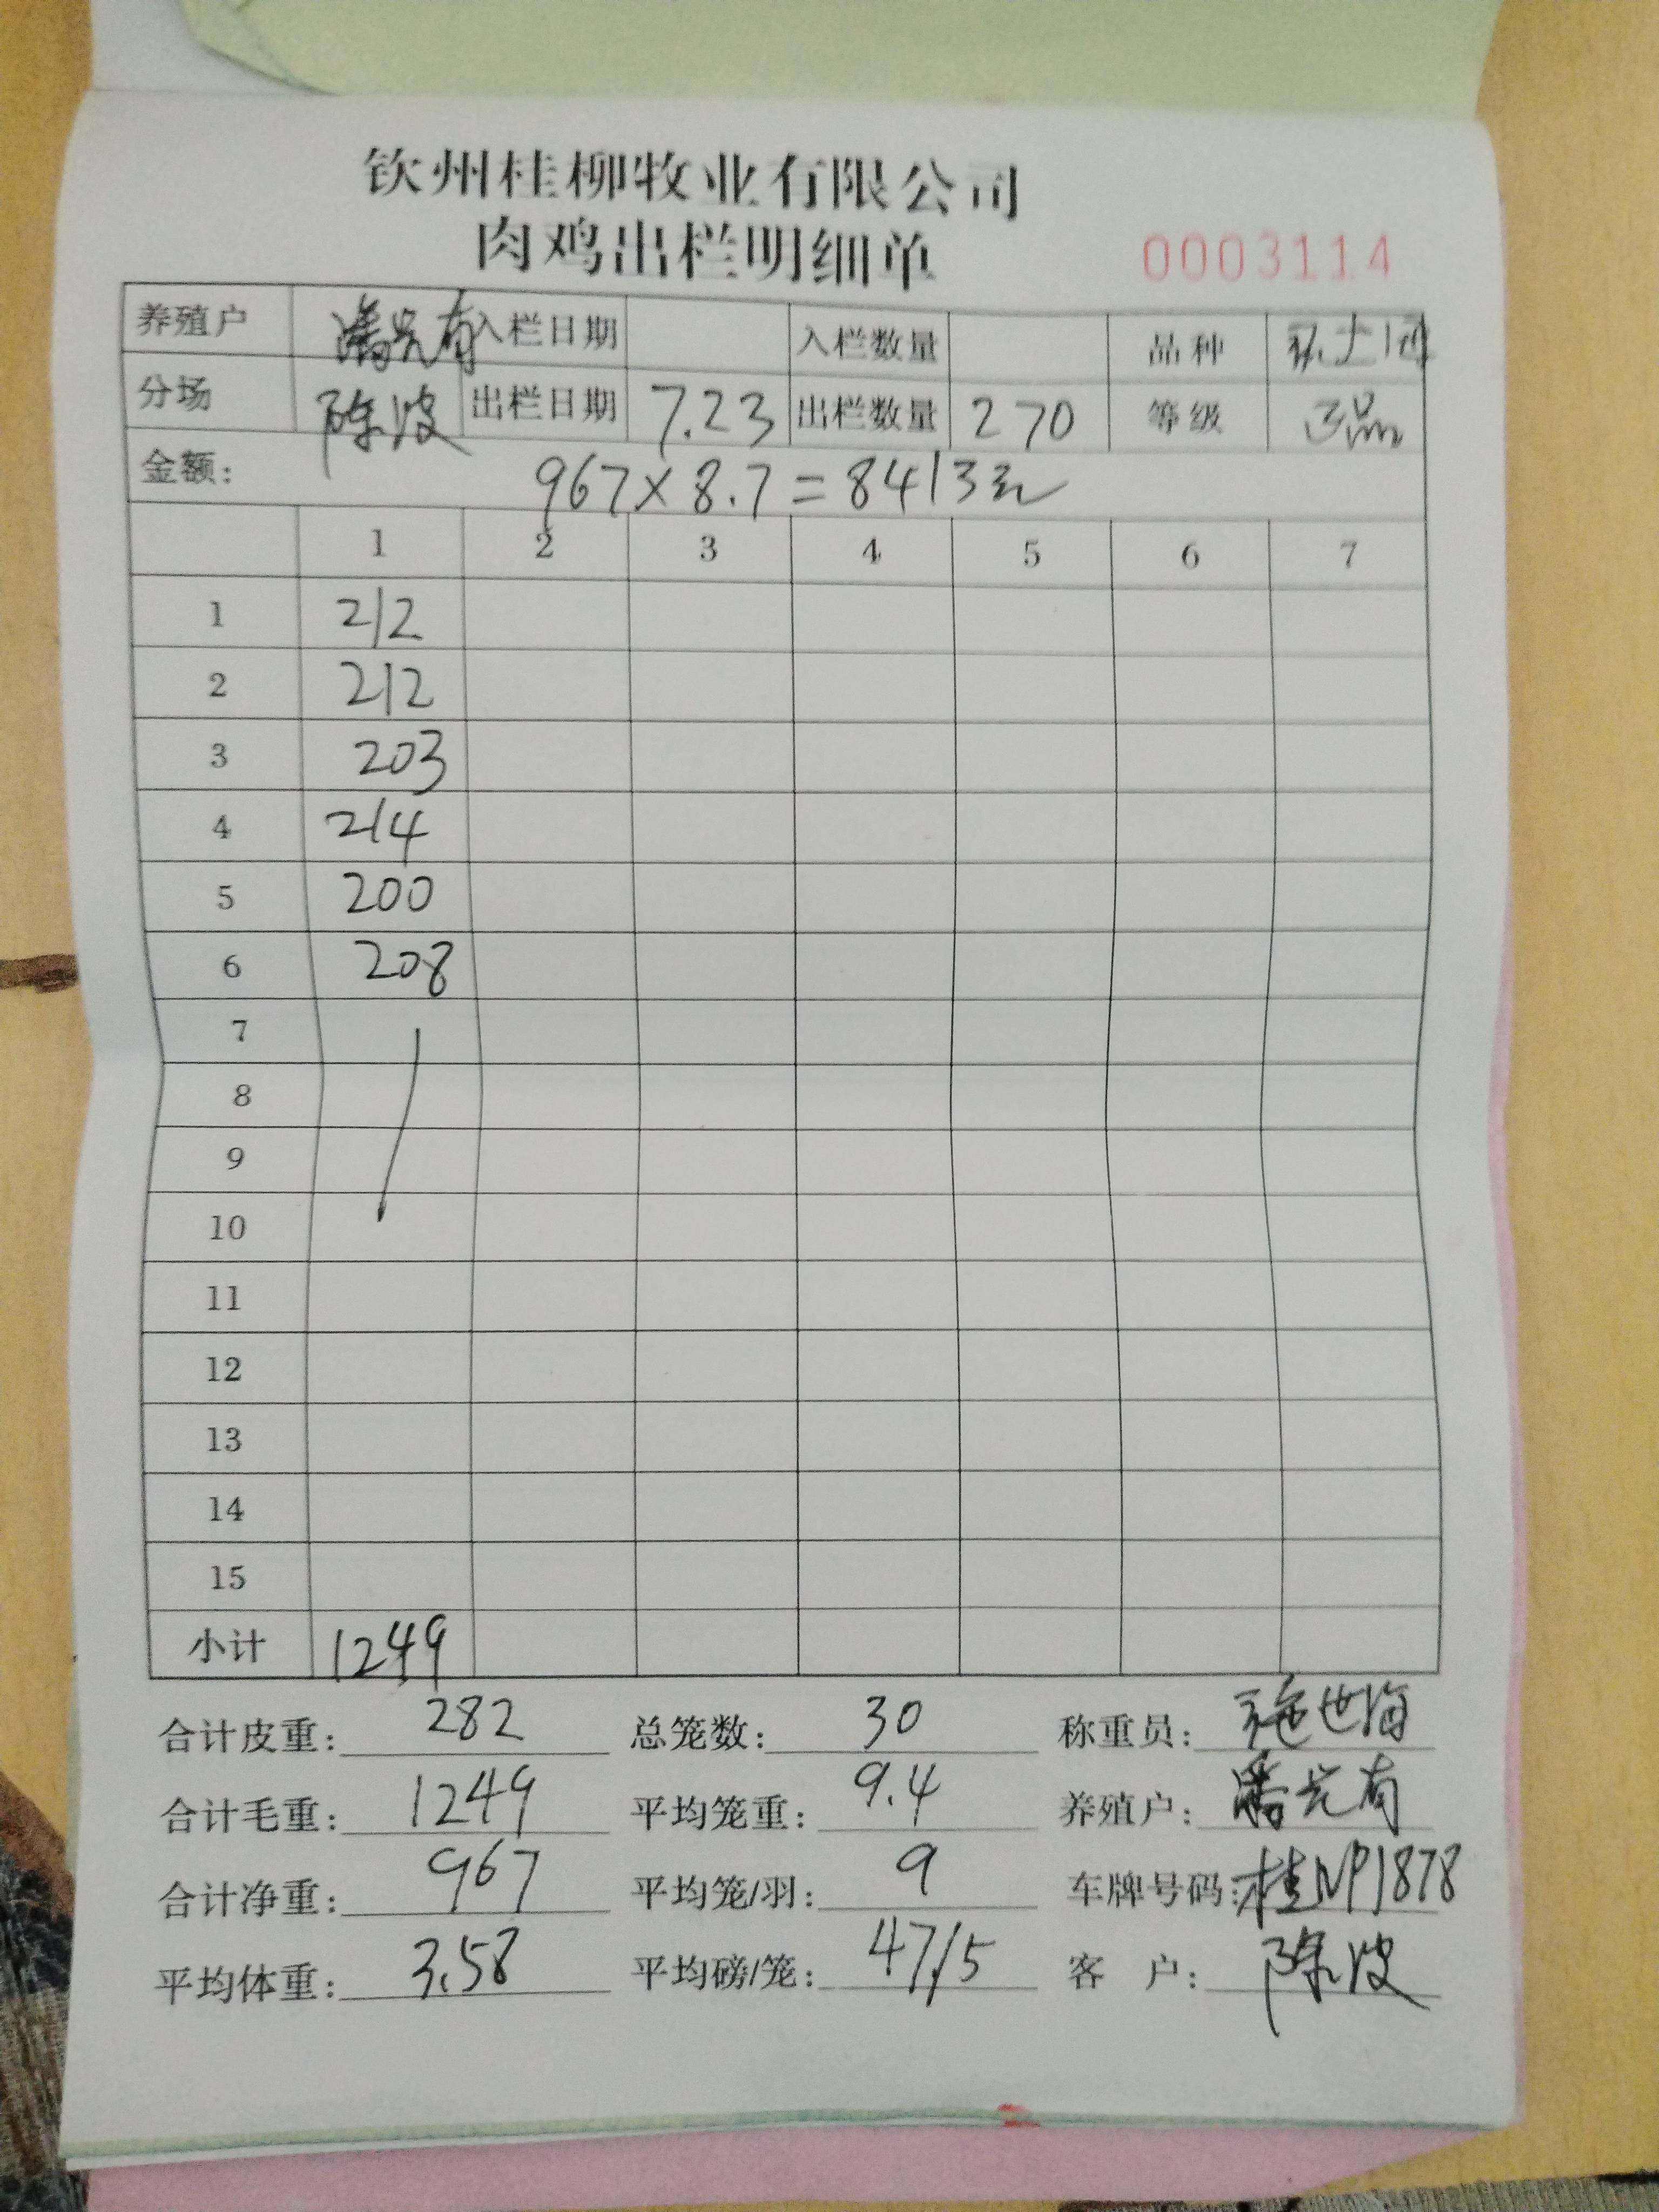 钦州桂柳牧业有限公司
肉鸡出栏明细单 0003114
养殖户 潘光有 入栏日期 入栏数量 品种
分场 陈波 出栏日期 7.23 出栏数量 270 等级 品
金额: 967×8.7=8413元
1 2 3 4 5 6 7
1 212
2 212
3 203
4 214
5 200
6 208
7
8
9
10
11
12
13
14
15
小计 1249
合计皮重: 282 总笼数: 30 称重员: 施世海
合计毛重: 1249 平均笼重: 9.4 养殖户: 潘光有
合计净重: 967 平均笼/羽: 9 车牌号码: 桂NP1878
平均体重: 3.58 平均磅/笼: 47/5 客 户: 陈波